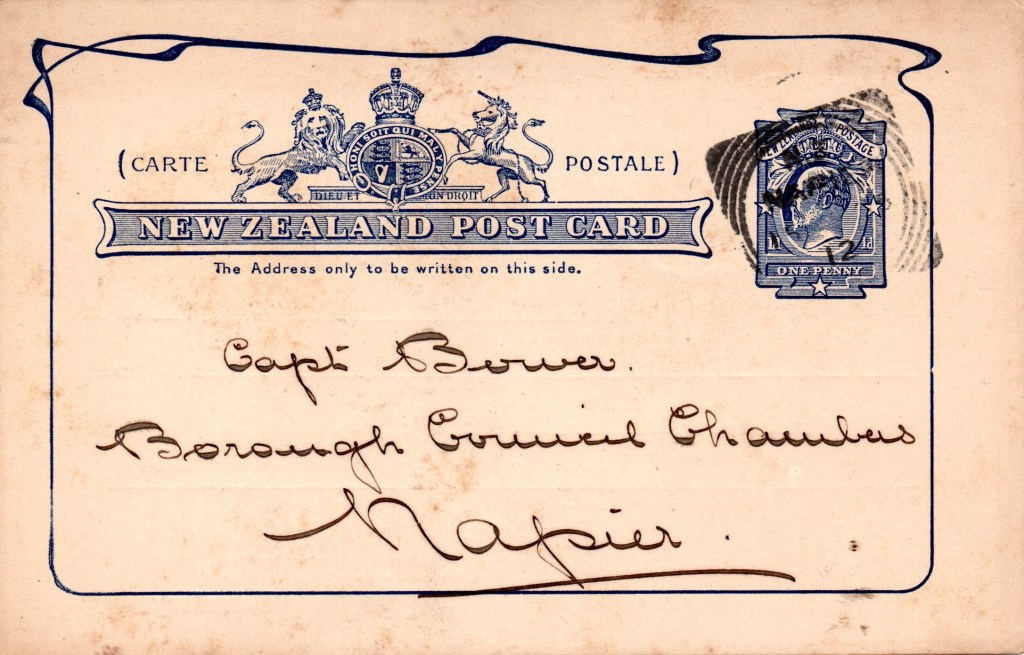 (CARTE POSTALE)
HONI SOIT QUI MAL Y PENSE
DIEU ET MON DROIT
NEW ZEALAND POST CARD
The Address only to be written on this side.
NEW ZEALAND POSTAGE
1d
ONE PENNY
12
Capt Bower.
Borough Council Chambers
Napier.